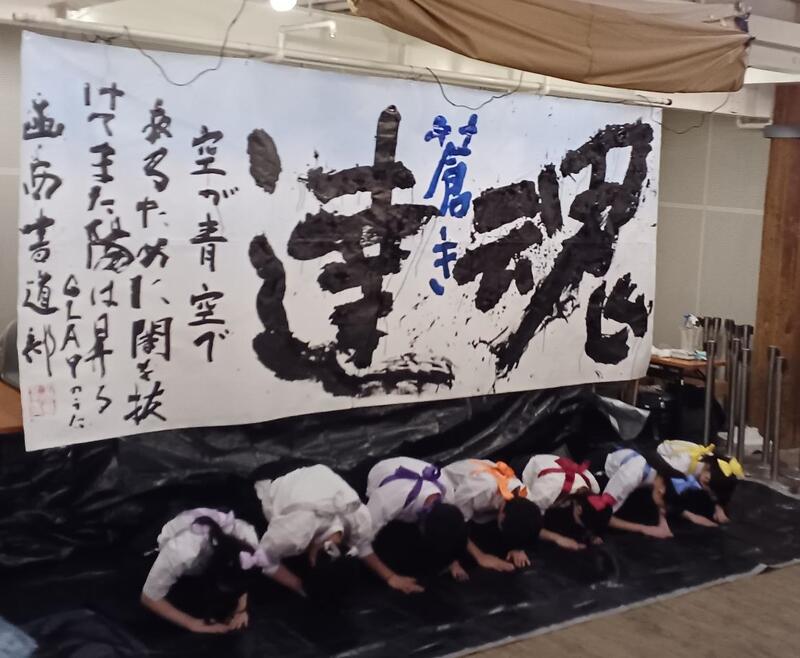 魂
蒼き
達
空が青空で
あるために、闇を抜
けてまた陽は昇る
GLAYのうた
函西書道部